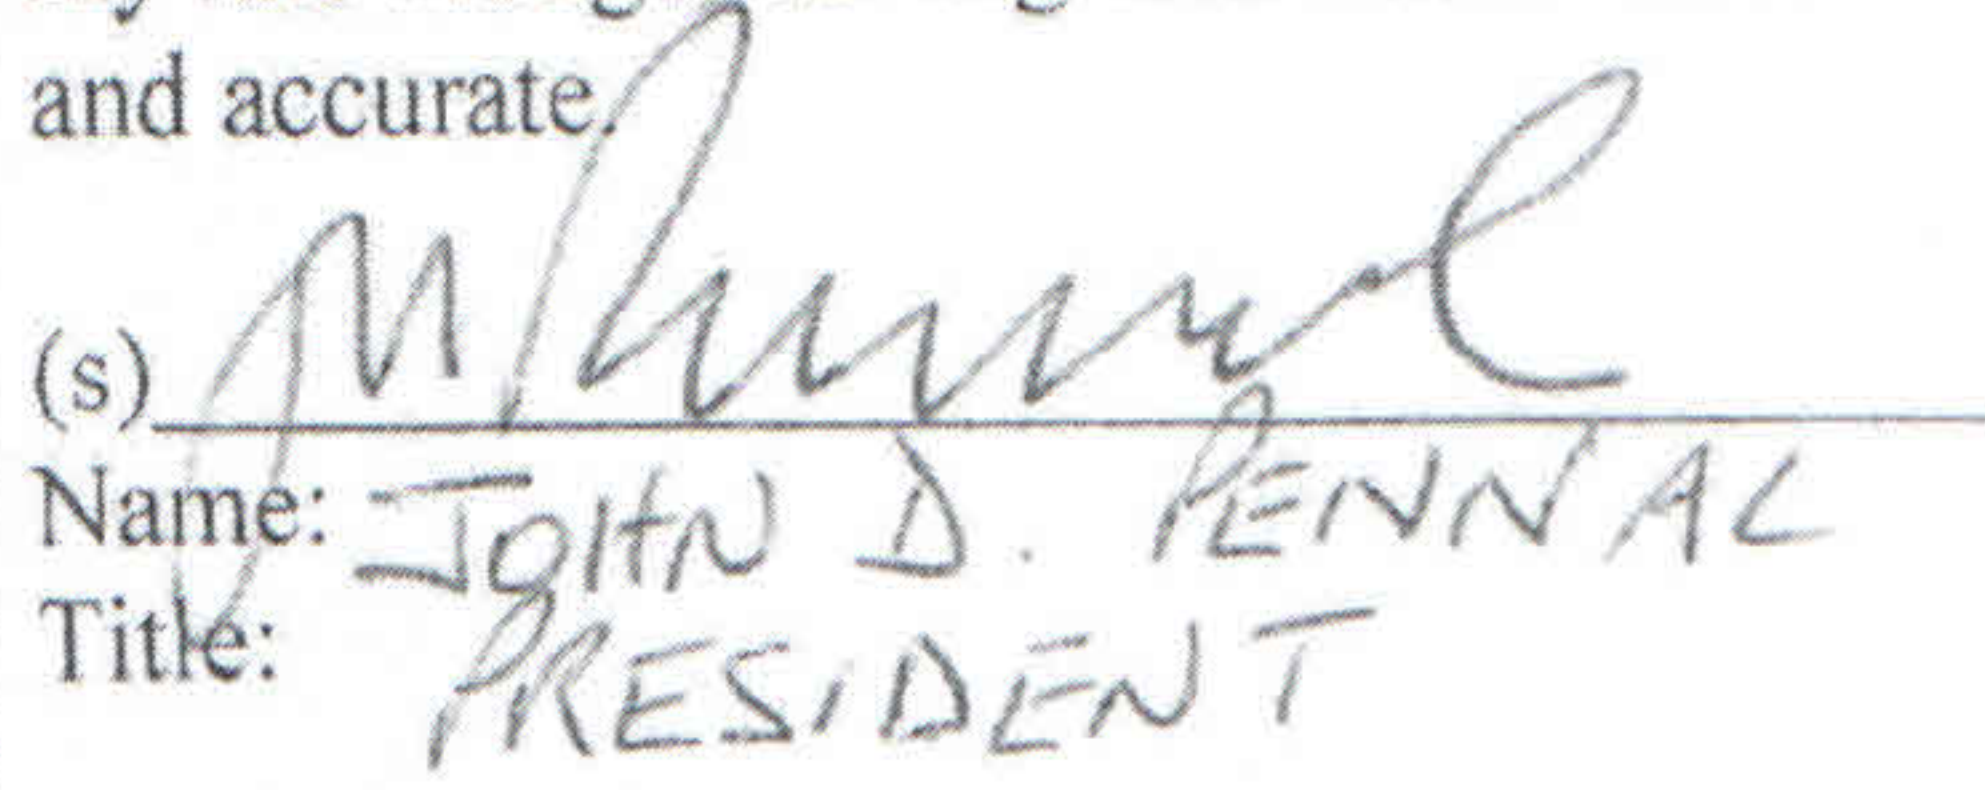 and accurate.
(s)
Name: JOHN D. PENNAL
Title: PRESIDENT